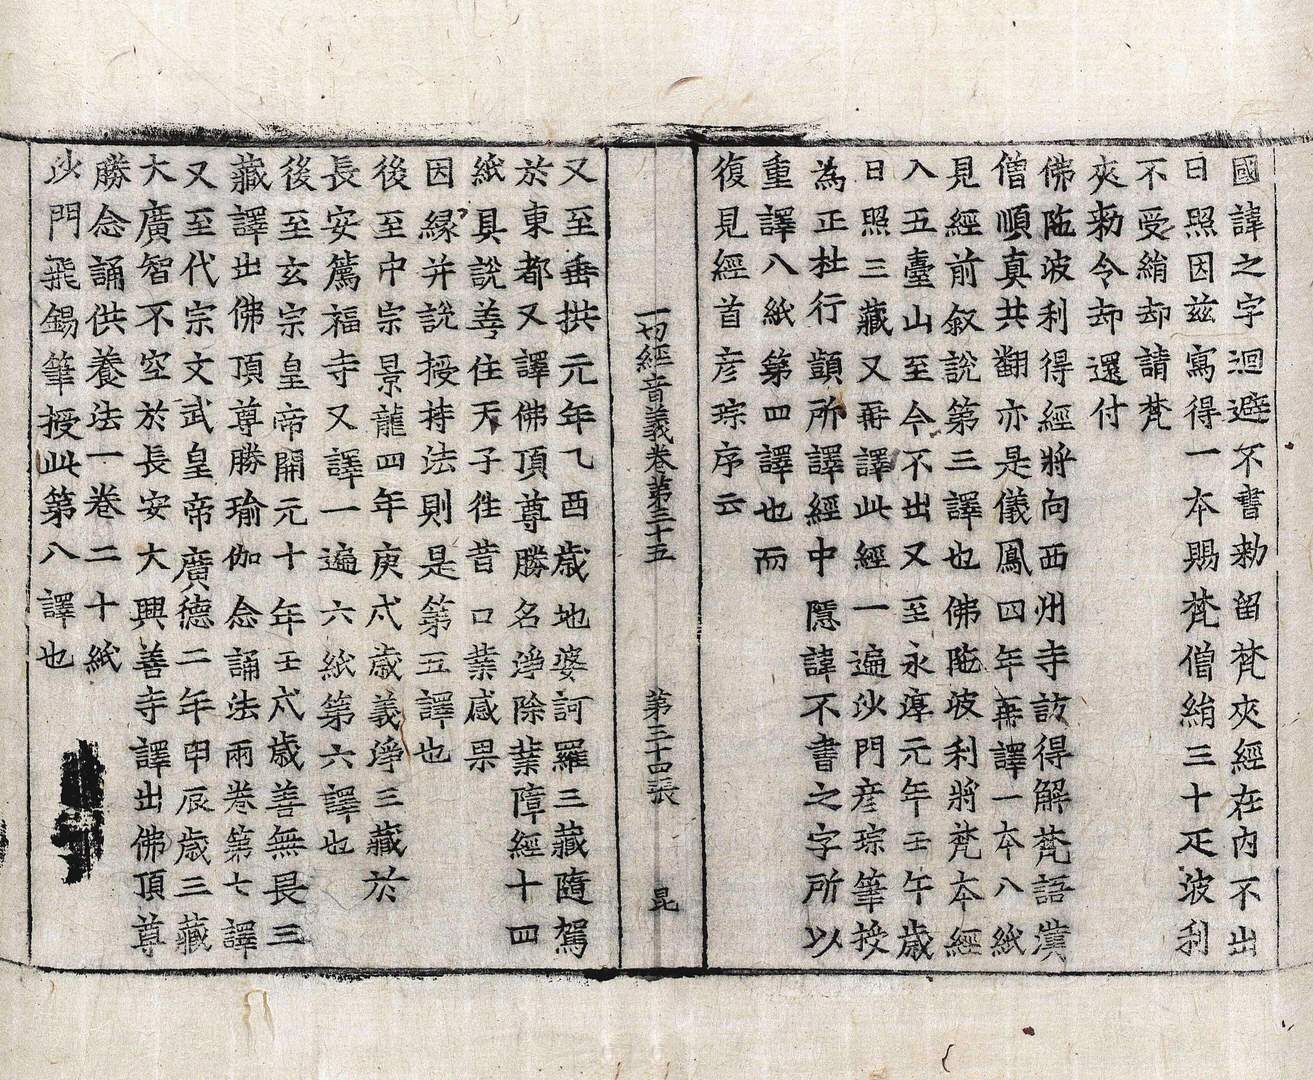 國諱之字迴避不書勑留梵夾經在內不出
日照因兹寫得一本賜梵僧絹三十疋波利
不受絹却請梵
夾勑令却還付
佛陁波利得經將向西州寺訪得解梵語漢
僧順真共翻亦是儀鳳四年再譯一本八紙
見經前敘說第三譯也佛陁波利將梵本經
入五臺山至今不出又至永淳元年壬午歲
日照三藏又再譯此經一遍沙門彦琮筆授
為正杜行顗所譯經中隱諱不書之字所以
重譯八紙第四譯也而
復見經首彦琮序云
一切經音義卷第三十五 第三十四張 昆
又至垂拱元年乙酉歲地婆訶羅三藏隨駕
於東都又譯佛頂尊勝名淨除業障經十四
紙具說善住天子徃昔口業感果
因緣并說授持法則是第五譯也
後至中宗景龍四年庚戌歲義淨三藏於
長安薦福寺又譯一遍六紙第六譯也
後至玄宗皇帝開元十年壬戌歲善無畏三
藏譯出佛頂尊勝瑜伽念誦法兩卷第七譯
又至代宗文武皇帝廣德二年甲辰歲三藏
大廣智不空於長安大興善寺譯出佛頂尊
勝念誦供養法一卷二十紙
沙門飛錫筆授此第八譯也